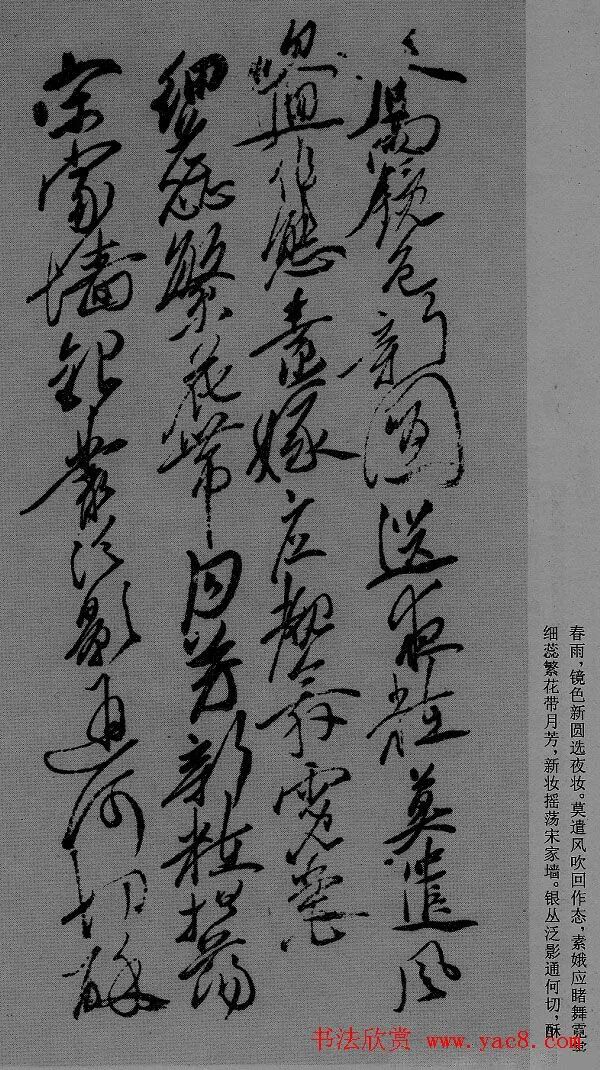 镜色新圆选夜粧莫遣风
吹迴作態素娥应覩舞霓裳
细蕊繁花带月芳新粧摇荡
宋家墙银丛泛影通何切酥
春雨，镜色新圆选夜妆。莫遣风吹回作态，素娥应睹舞霓裳
细蕊繁花带月芳，新妆摇荡宋家墙。银丛泛影通何切，酥
书法欣赏 www.yac8.com